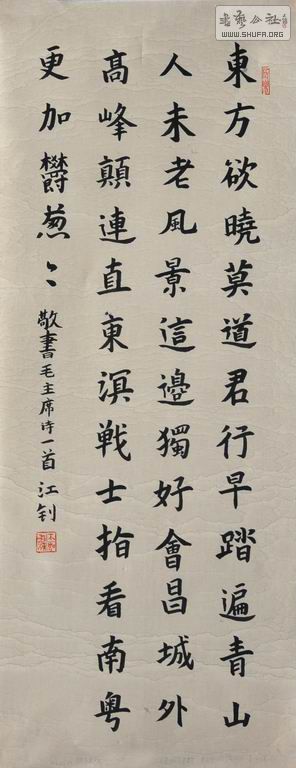 東方欲曉莫道君行早踏遍青山
人未老風景這邊獨好會昌城外
髙峰顛連直東溟戰士指看南粤
更加欝葱〻
敬書毛主席诗一首 江钊
書藝公社
WWW.SHUFA.ORG